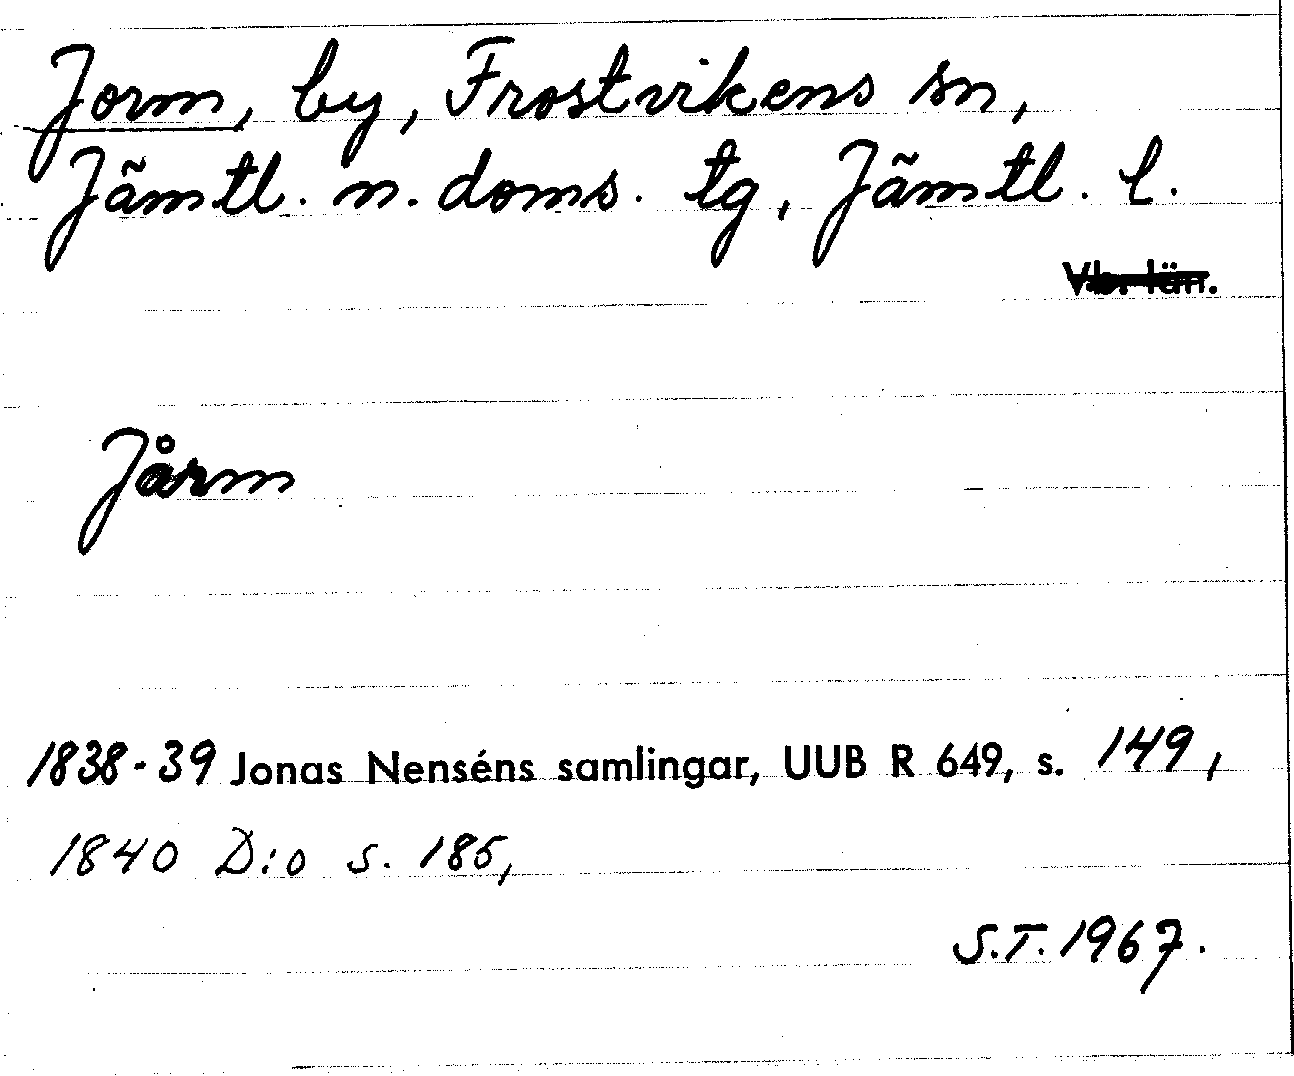 Jorm, by, Frostvikens sn,
Jämtl. n. doms. tg, Jämtl. l.
Vb. län.
Jårm
1838-39 Jonas Nenséns samlingar, UUB R 649, s. 149,
1840 D:o s. 185,
S.T. 1967.